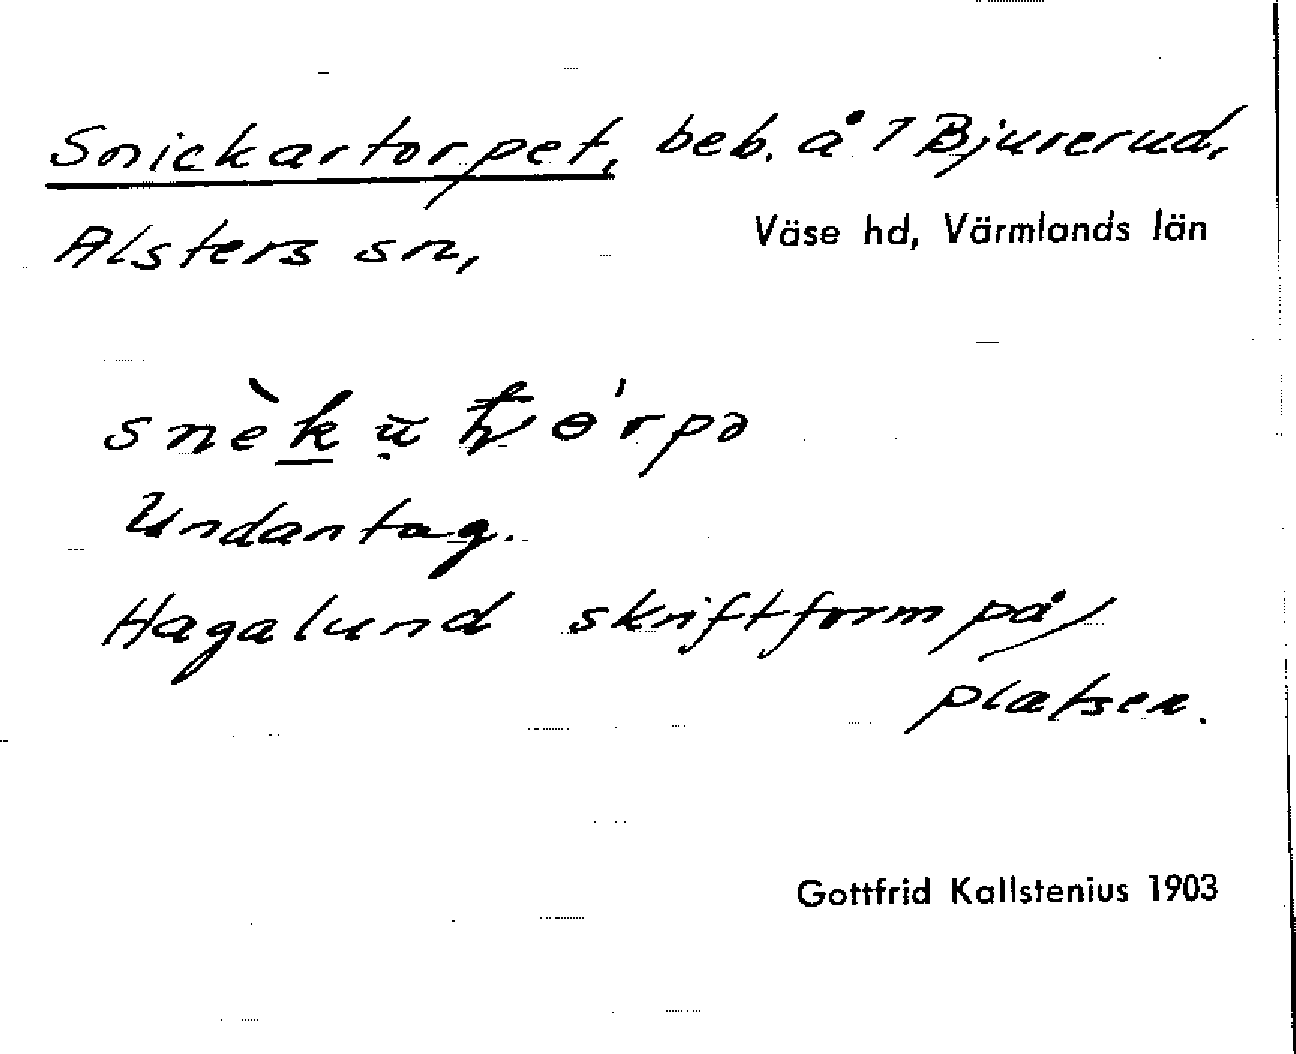 Snickartorpet, beb. å 7 Bjurerud,
Alsters sn,
Väse hd, Värmlands län
Undantag.
Hagalund skriftform på
platsen.
Gottfrid Kallstenius 1903